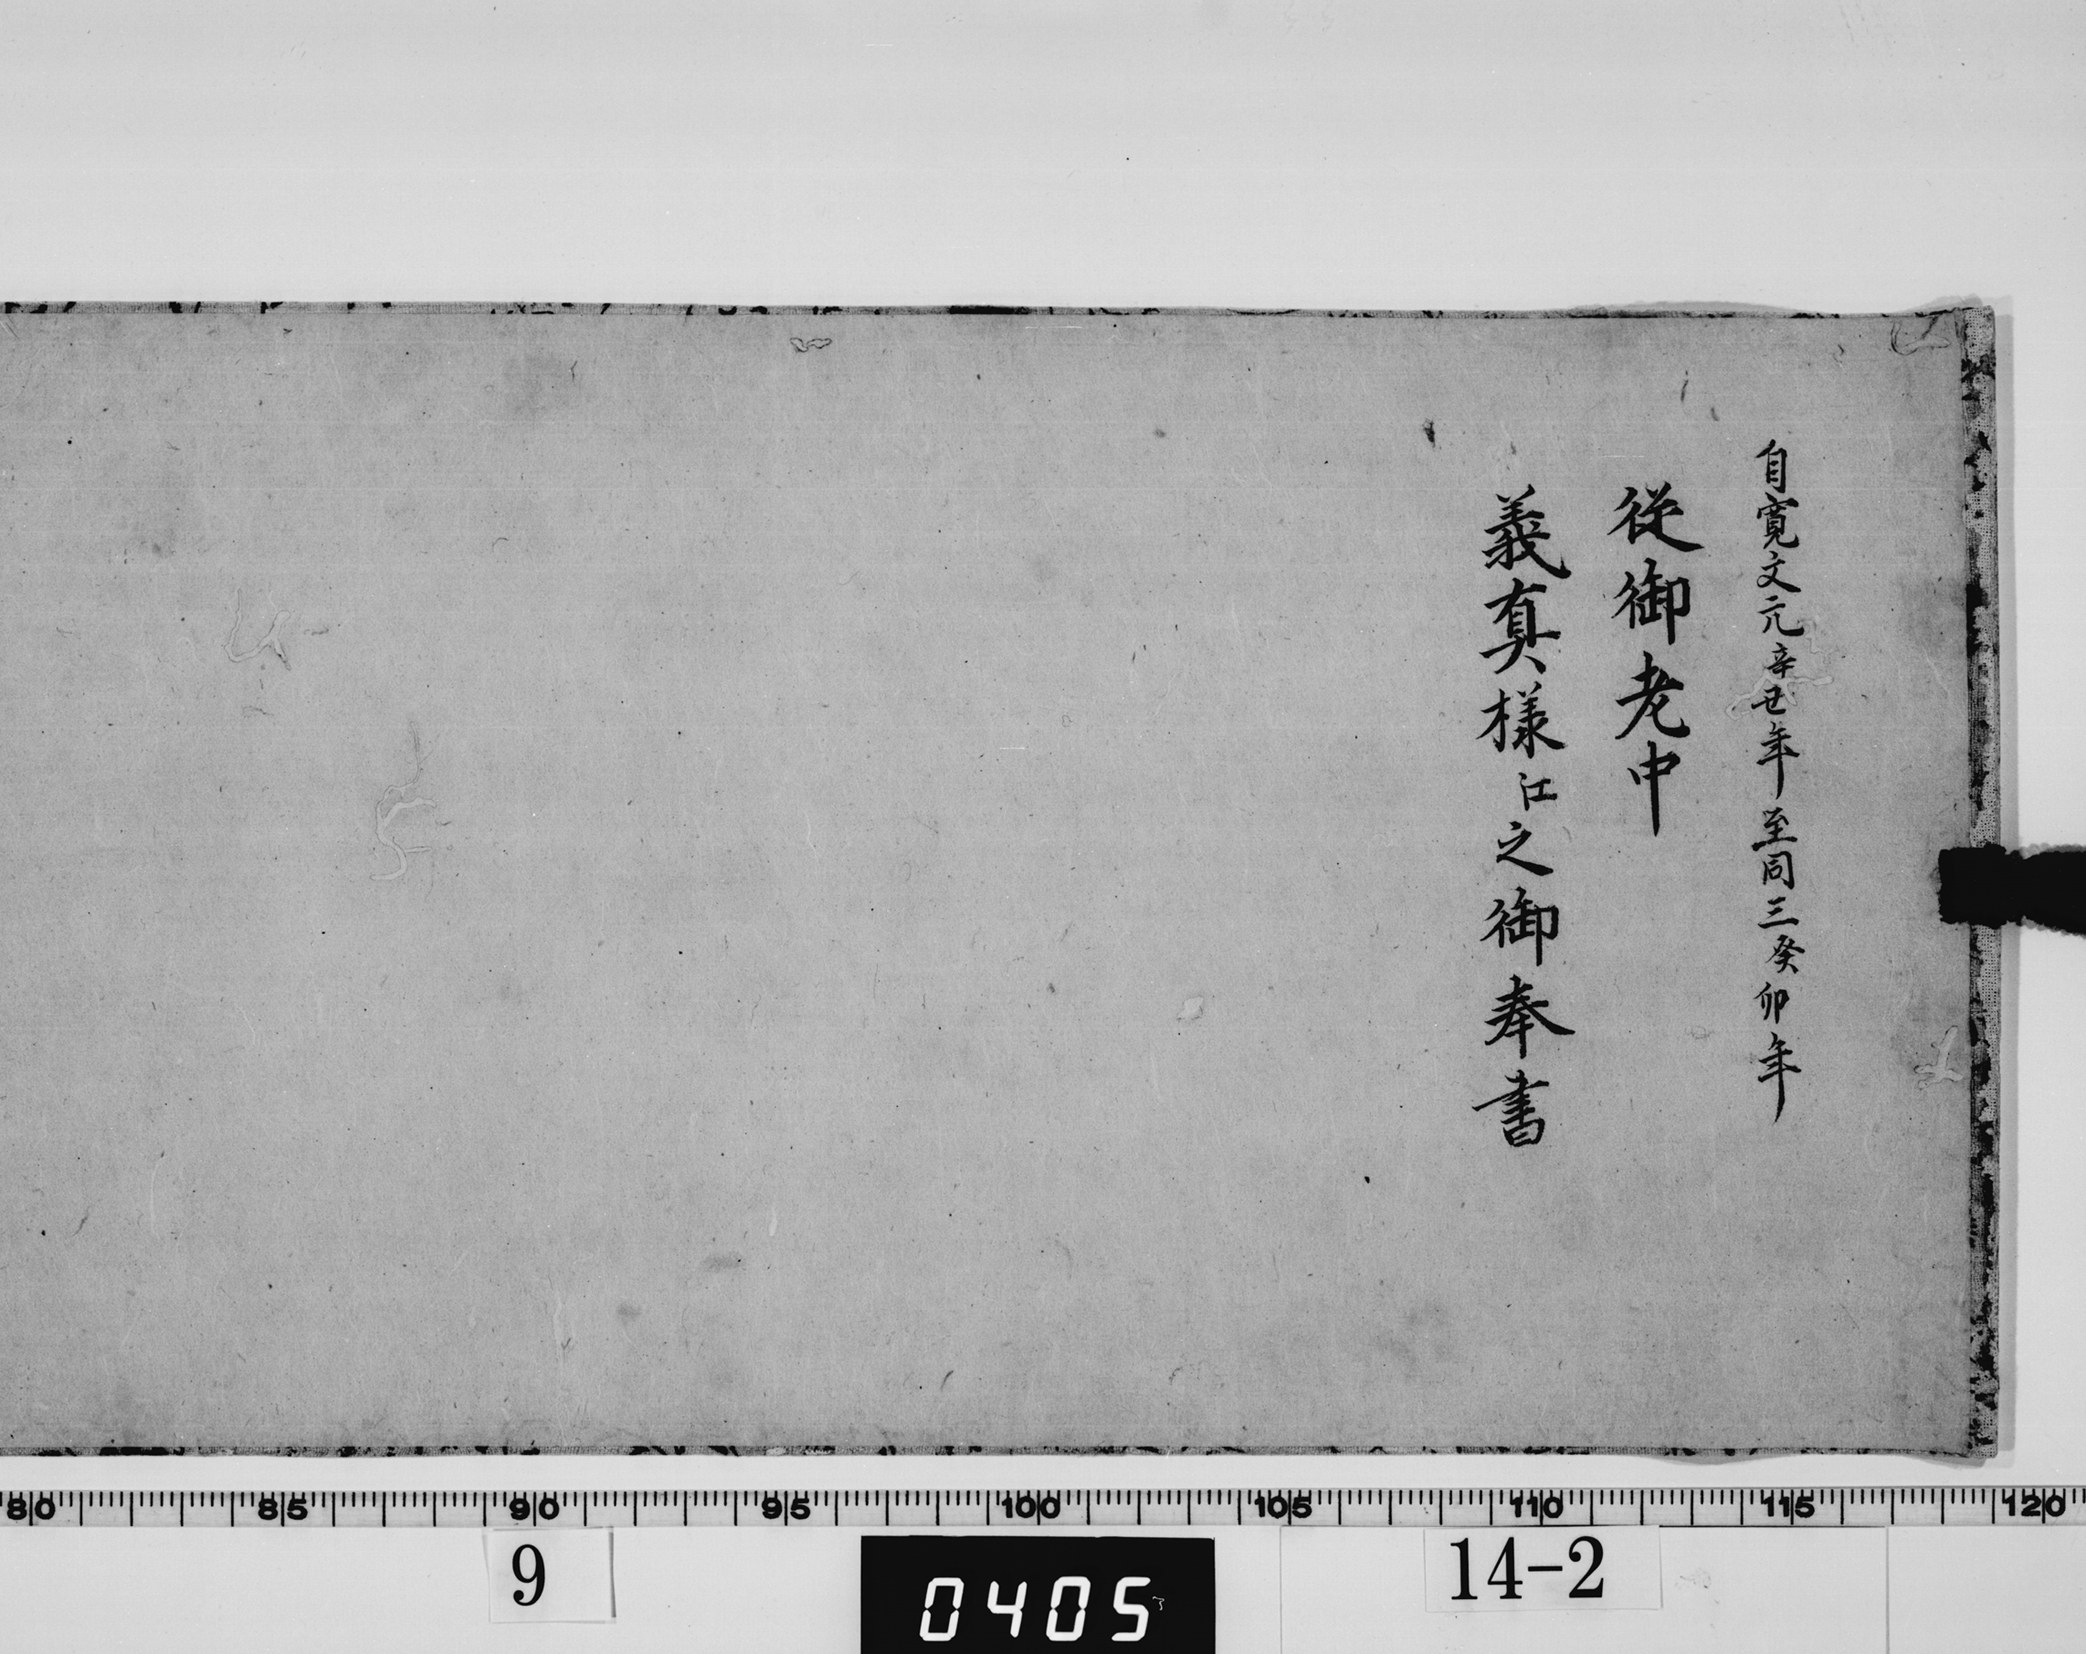 自寛文元辛丑年至同三癸卯年
従御老中
義真様江之御奉書
80 85 90 95 100 105 110 115 120
9
0405
14-2